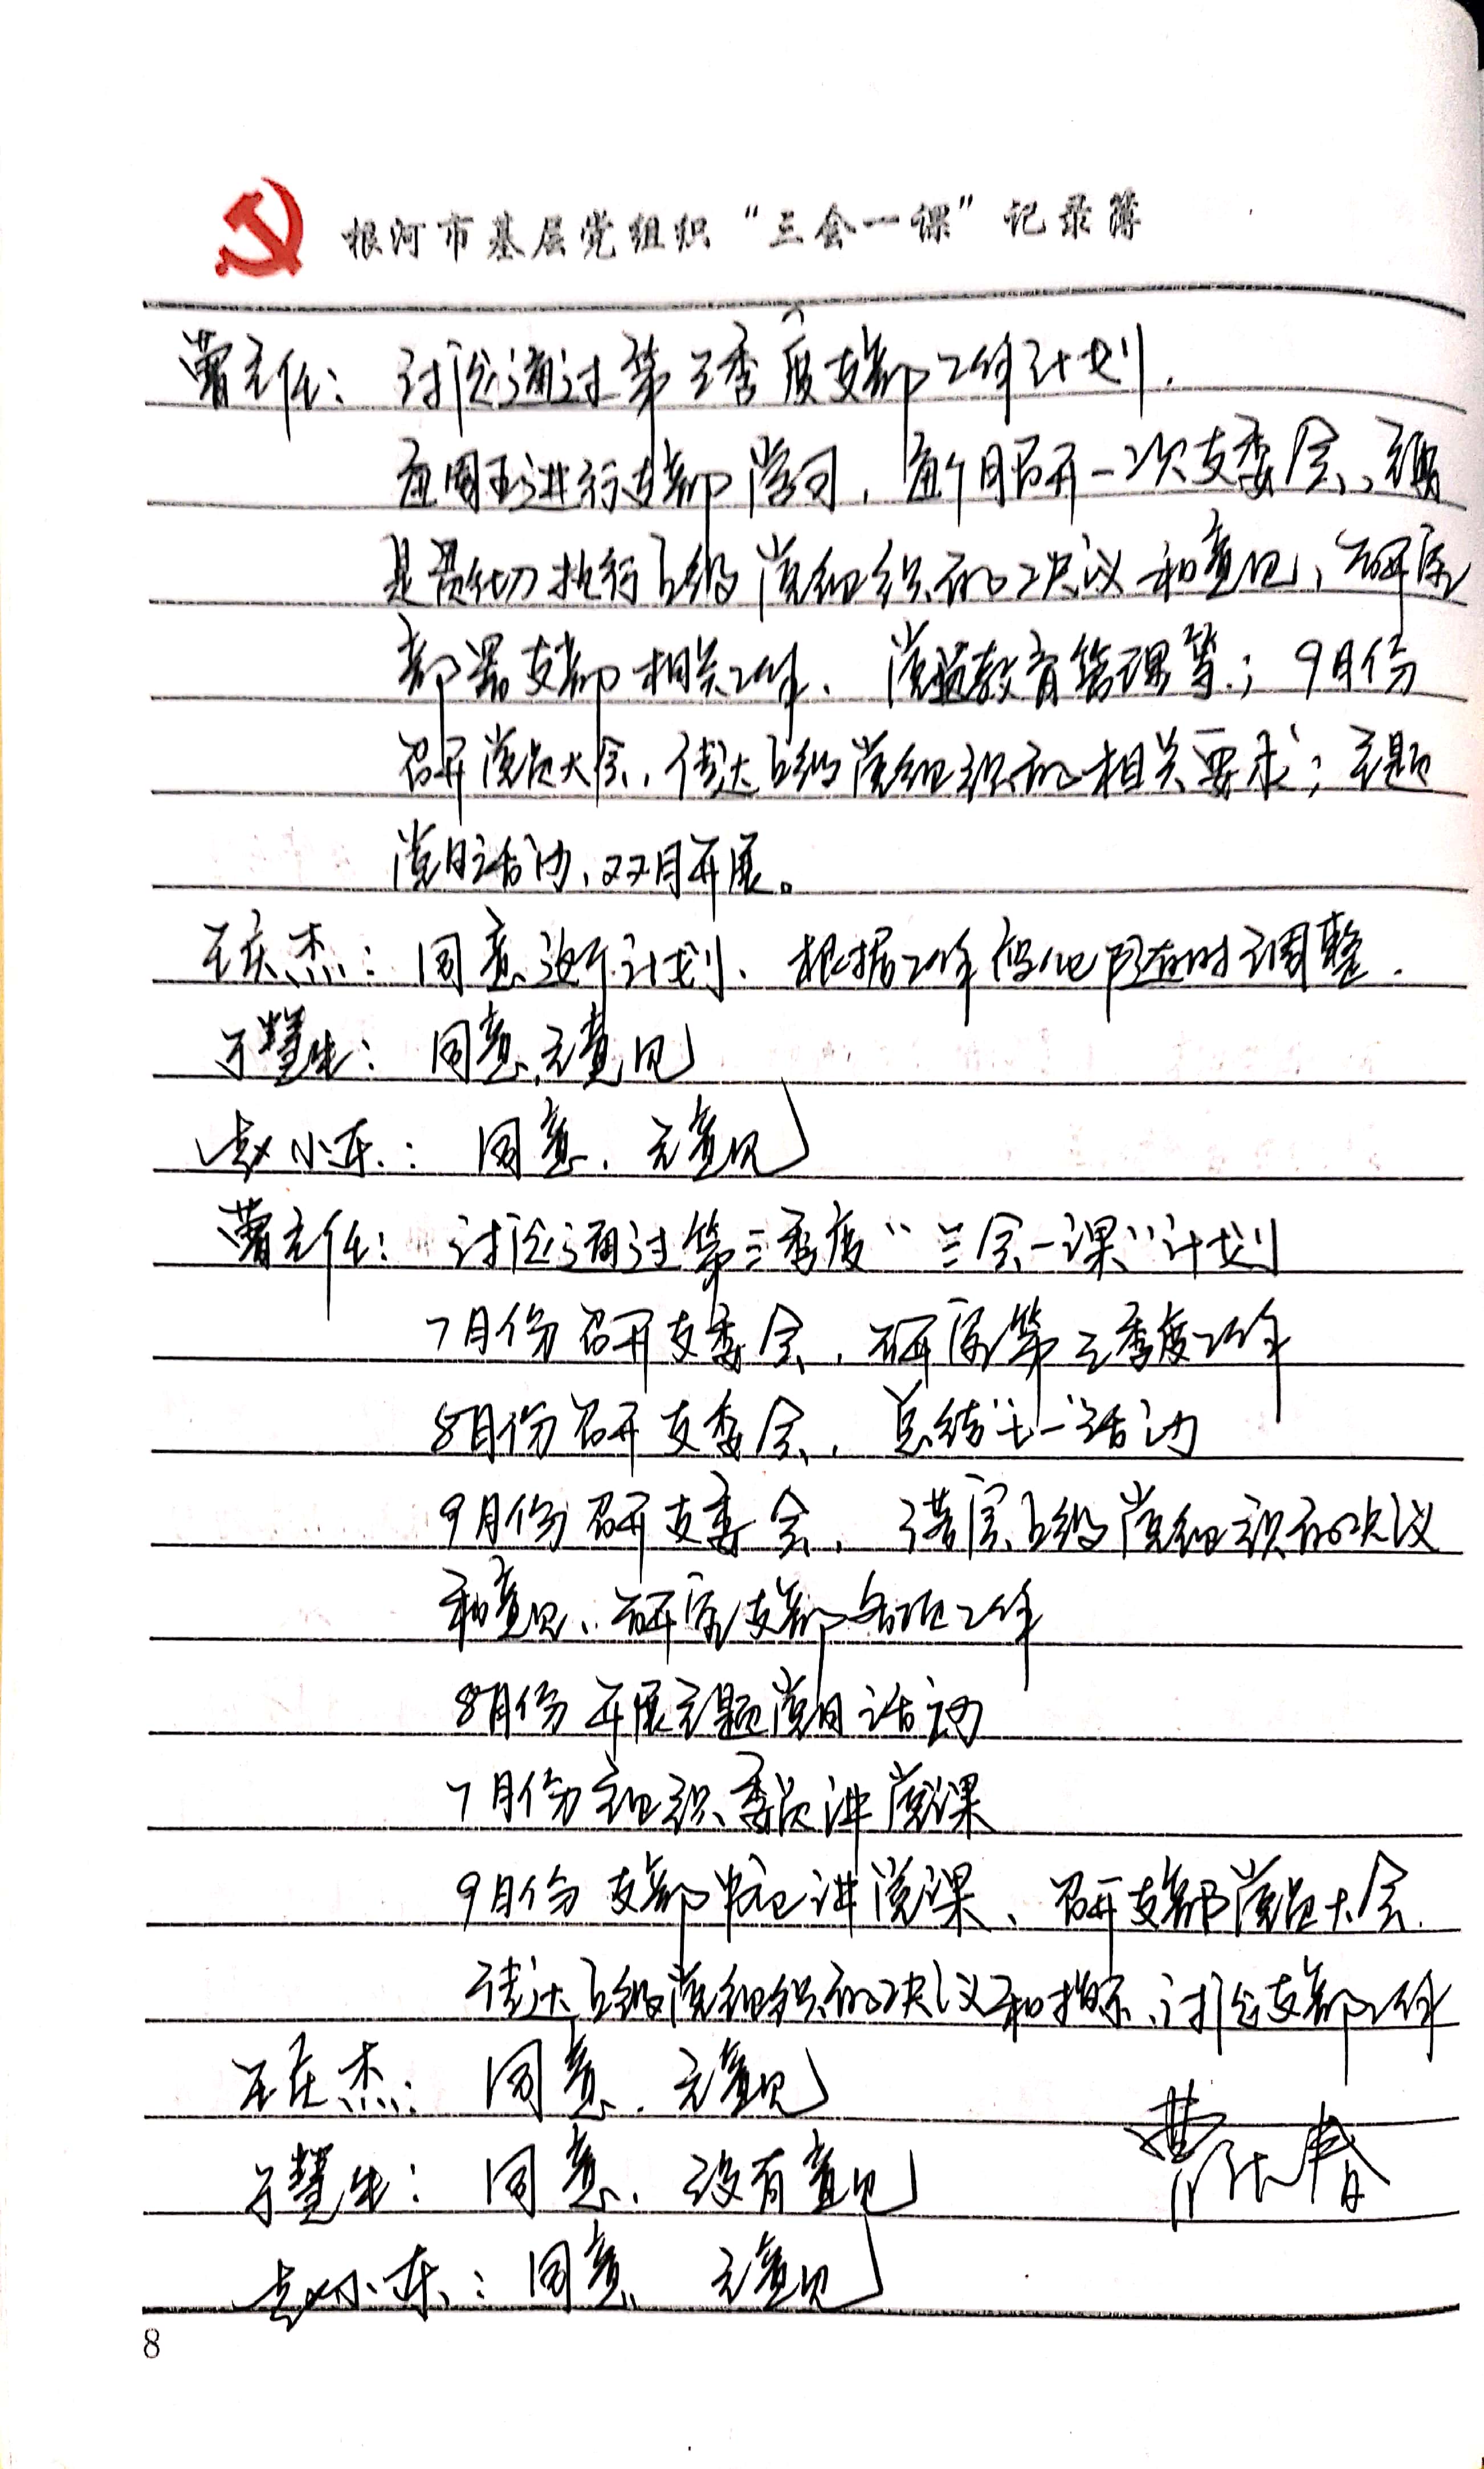 根河市基层党组织“三会一课”记录簿
曹主任：讨论通过第三季度支部工作计划.
每周五进行支部学习，每个月召开一次支委会，主要
是贯彻执行上级党组织的决议和意见，研究
部署支部相关工作、党员教育管理等；9月份
召开党员大会，传达上级党组织的相关要求；主题
党日活动，双月开展。
王庆杰：同意这个计划、根据工作情况随时调整.
于慧生：同意，无意见
赵小东：同意，无意见
曹主任：讨论通过第三季度“三会一课”计划
7月份召开支委会，研究第三季度工作
8月份召开支委会，总结“七一”活动
9月份召开支委会，落实上级党组织的决议
和意见、研究支部各项工作
8月份开展主题党日活动
7月份组织委员讲党课
9月份支部书记讲党课、召开支部党员大会
传达上级党组织的决议和指示、讨论支部工作
王庆杰：同意，无意见
于慧生：同意，没有意见
赵小东：同意 无意见
8